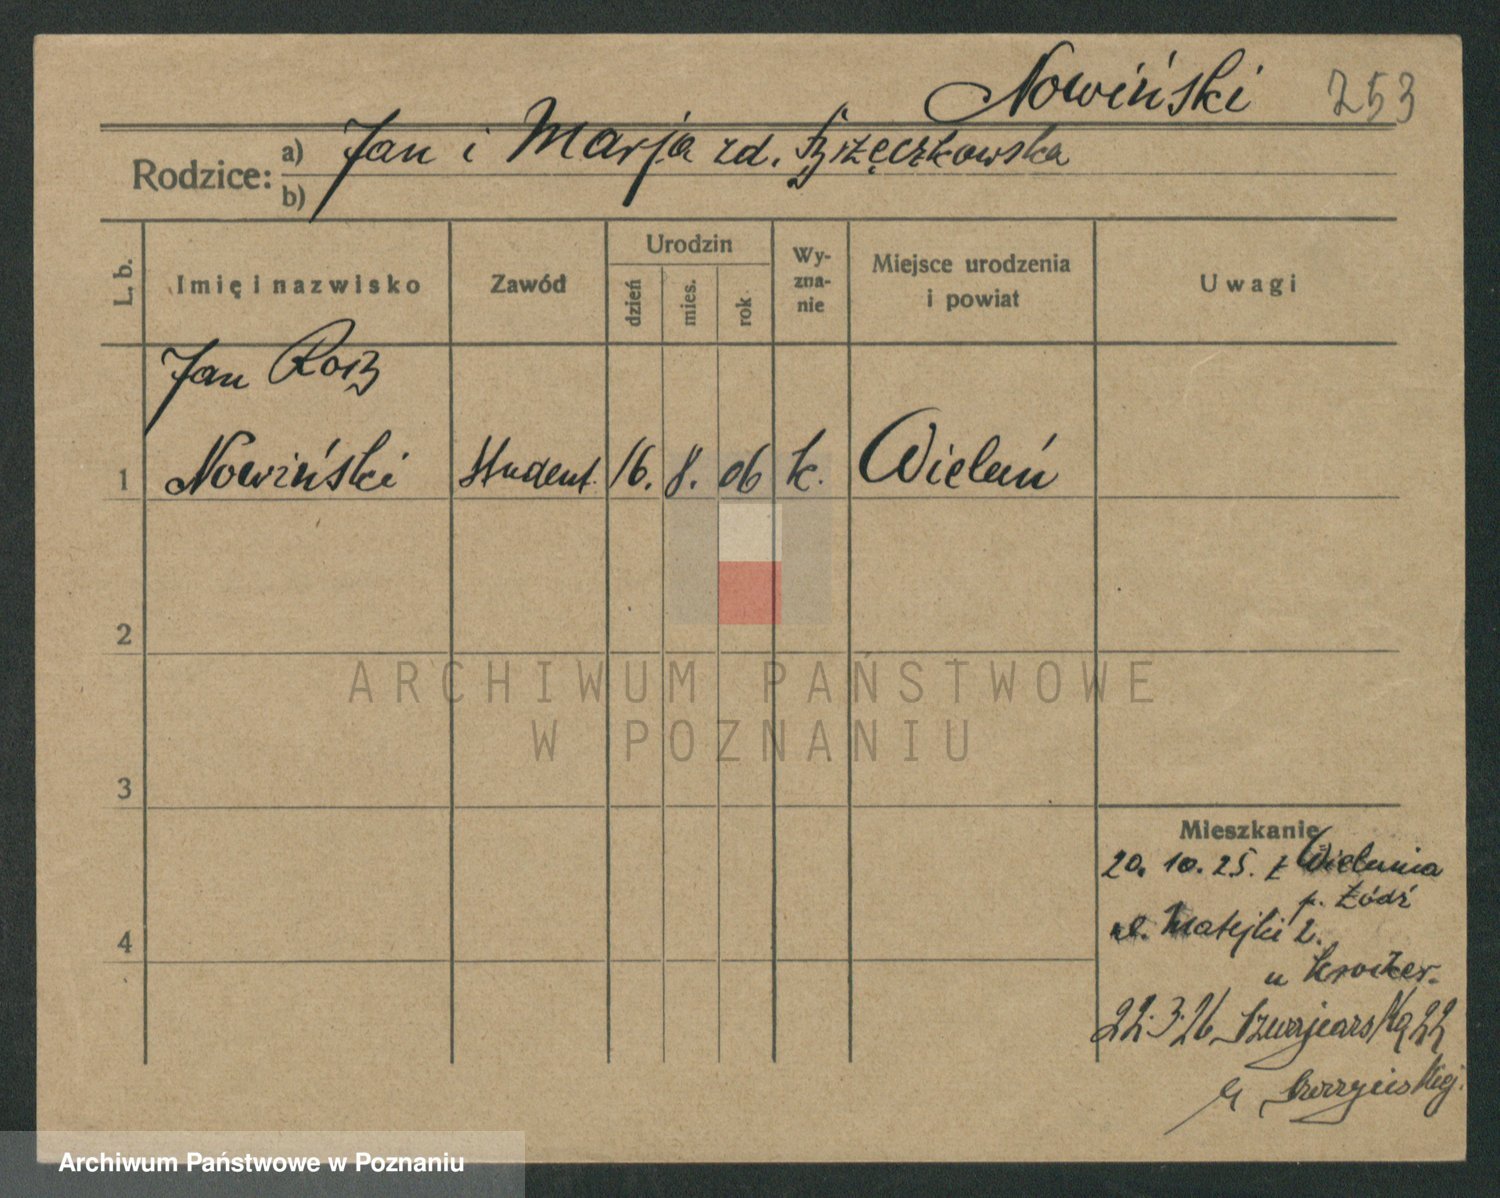 Nowiński 253
Rodzice: a) Jan i Marja zd.
b)
L. b. Imię i nazwisko Zawód Urodzin dzień mies. rok Wyzna-nie Miejsce urodzenia i powiat Uwagi
Jan
1 Nowiński student. 16. 8. 06 k. Wieluń
2
ARCHIWUM PAŃSTWOWE
W POZNANIU
3
Mieszkanie
20. 10. 25. z Wielunia
p. Łódź
4 ul. Matejki 2.
u
22.3.26 22
Archiwum Państwowe w Poznaniu